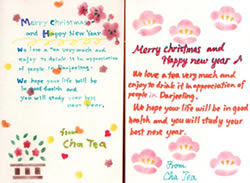 Merry Christmas
and Happy New Year
We love a tea very much and
enjoy to drink it in appreciation
of people in Darjeeling.
We hope your life will be
in good health and
you will study your best
next year.
from
Cha Tea
Merry Christmas and
Happy new year
We love a tea very much and
enjoy to drink it in appreciation of
people in Darjeeling.
We hope your life will be in good
health and you will study your
best next year.
From
Cha Tea